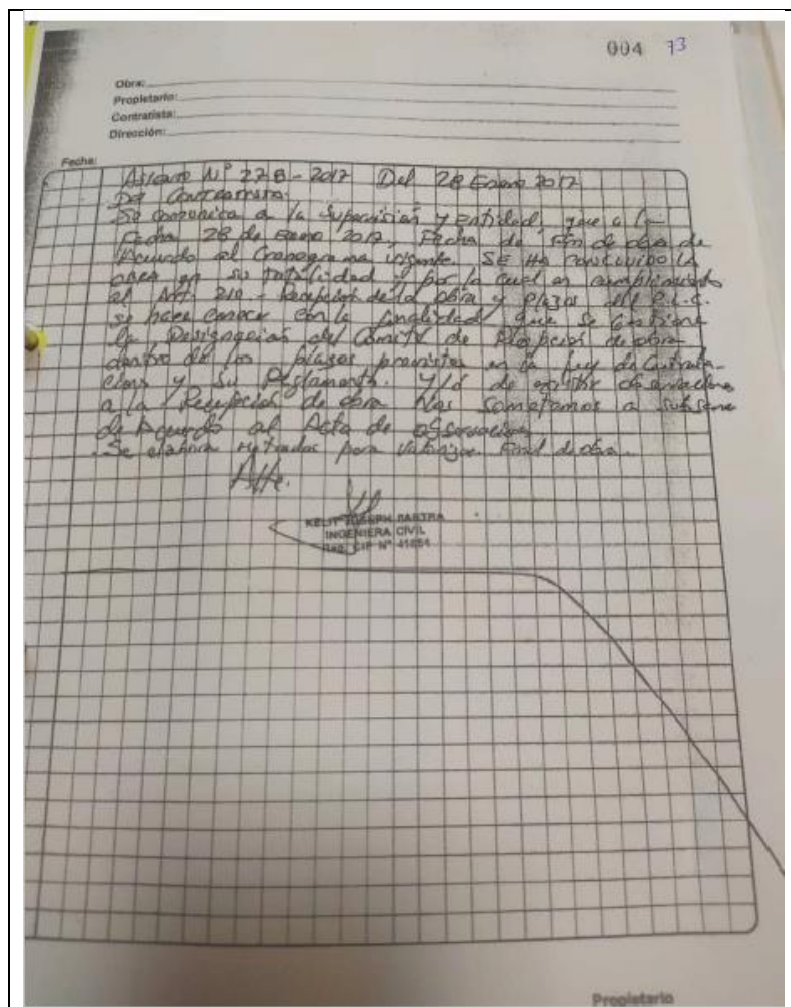 004 73
Obra:
Propietario:
Contratista:
Dirección:
Fecha:
Asiento Nº 228-2017 Del 28 Enero 2017
Del Contratista.
Se comunica a la Supervisión y Entidad, que a la
Fecha 28 de Enero 2017, Fecha de Fin de obra de
Acuerdo al Cronograma vigente. SE HA CONCLUIDO LA
obra en su totalidad y por lo cual en cumplimiento
al Art. 210.- Recepción de la obra y plazos del R.L.C.
se hace conocer con la finalidad que se gestione
la Designación del Comité de Recepción de obra
dentro de los plazos previstos en la Ley de Contrata-
ciones y su Reglamento. Y/o de existir observaciones
a la Recepción de obra Nos sometamos a
de Acuerdo al Acta de observación
Se elabora metrados para Valorizac. Final de obra.
Atte.
KELIT JOSEPH SARTRA
INGENIERA CIVIL
Reg. CIP Nº
Propietario